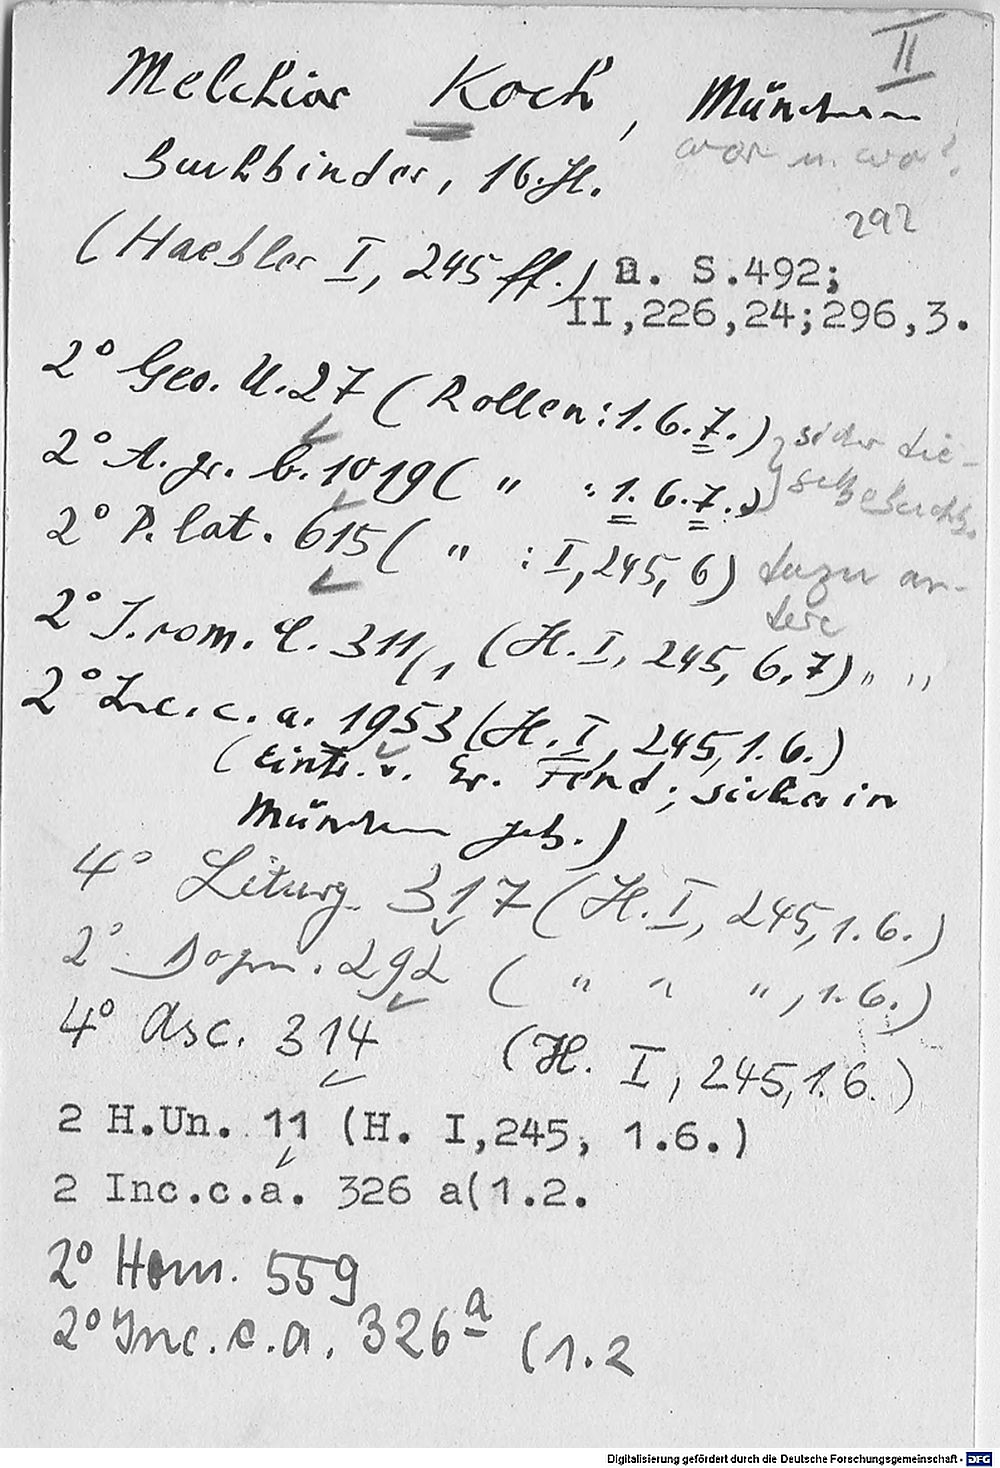 II
Melchior Koch, München
wer u. wo?
Buchbinder, 16. Jh.
292
(Haebler I, 245 ff.) u. S.492;
II,226,24;296,3.
2° Geo. U. 27 (Rollen: 1. 6. 7.) sicher die-
2° A. gr. b. 1019 ( " : 1. 6. 7.) selbe
2° P. lat. 615 ( " : I, 245, 6) dazu an-
dere
2° J. rom. c. 311/1 (H. I, 245, 6, 7) " "
2° Inc. c. a. 1953 (H. I, 245, 1. 6.)
(Eintr. v. Gr. Fend; sicher in
München geb.)
4° Liturg. 317 (H. I, 245, 1. 6.)
2° Dogm. 292 ( " " ", 1. 6.)
4° Asc. 314 (H. I, 245, 1. 6.)
2 H.Un. 11 (H. I,245, 1.6.)
2 Inc.c.a. 326 a(1.2.
2° Hom. 559
2° Inc. c. a. 326a (1. 2
Digitalisierung gefördert durch die Deutsche Forschungsgemeinschaft - DFG